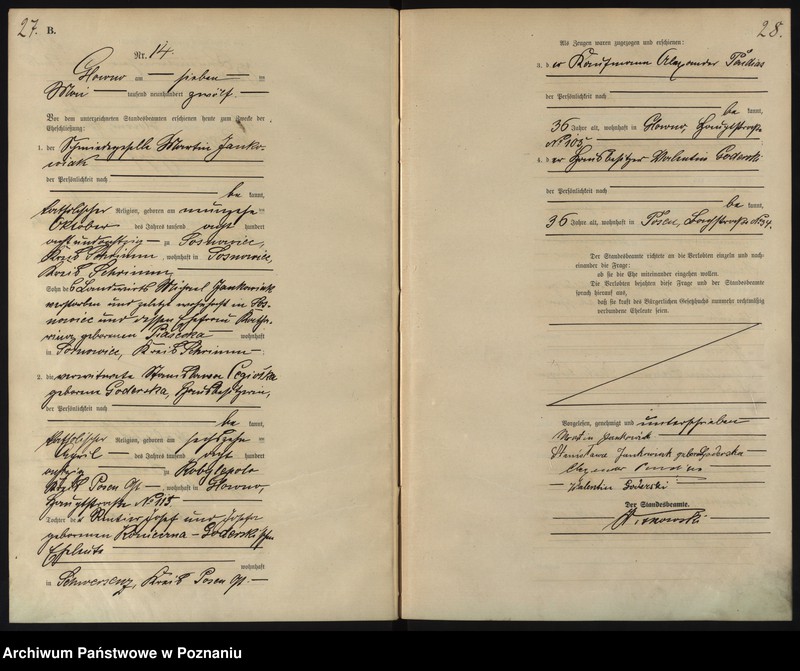 27.
B.
Nr. 14.
Głowno am sieben ten
Mai tausend neunhundert zwölf.
Vor dem unterzeichneten Standesbeamten erschienen heute zum Zwecke der
Eheschließung:
1. der Schmiedegeselle Martin Janko-
wiak
der Persönlichkeit nach
be kannt,
katholischer Religion, geboren am neunzehn ten
Oktober des Jahres tausend acht hundert
achtundachtzig zu Sosnowiec,
Kreis Schrimm, wohnhaft in Sosnowiec,
Kreis Schrimm,
Sohn des Landwirts Michael Jankowiak
verstorben und zuletzt wohnhaft in Sos-
nowiec und dessen Ehefrau Katha-
rina geborenen wohnhaft
in Sosnowiec, Kreis Schrimm
2. die verwitwete Stanislawa
geborene Goderska, Hausbesitzerin,
der Persönlichkeit nach
be kannt,
katholischer Religion, geboren am sechzehn ten
April des Jahres tausend acht hundert
achtzig zu Kobylepole
Kreis Posen Ost, wohnhaft in Głowno,
Hauptstraße No
Tochter der Rentier Josef und Josefa
geborenen Goderski'schen
Eheleute
wohnhaft
in Schwersenz, Kreis Posen Ost.
28.
Als Zeugen waren zugezogen und erschienen:
3. der Kaufmann Alexander
der Persönlichkeit nach
be kannt,
36 Jahre alt, wohnhaft in Głowno, Hauptstraße
No 105
4. der Hausbesitzer Valentin Goderski
der Persönlichkeit nach
be kannt,
36 Jahre alt, wohnhaft in Posen, No 34.
Der Standesbeamte richtete an die Verlobten einzeln und nach-
einander die Frage:
ob sie die Ehe miteinander eingehen wollen.
Die Verlobten bejahten diese Frage und der Standesbeamte
sprach hierauf aus,
daß sie kraft des Bürgerlichen Gesetzbuchs nunmehr rechtmäßig
verbundene Eheleute seien.
Vorgelesen, genehmigt und unterschrieben
Martin Jankowiak
Stanisława Jankowiak geb. Goderska
Alexander
Walenty Goderski
Der Standesbeamte.
Archiwum Państwowe w Poznaniu